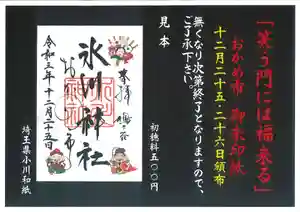 「笑う門には福来る」
おかめ市 御朱印紙
十二月二十五・二十六日頒布
無くなり次第終了となりますので、
ご了承下さい。
見本
初穂料五〇〇円
奉拝
氷川神社
おかめ市
令和三年十二月二十五日
埼玉県小川和紙